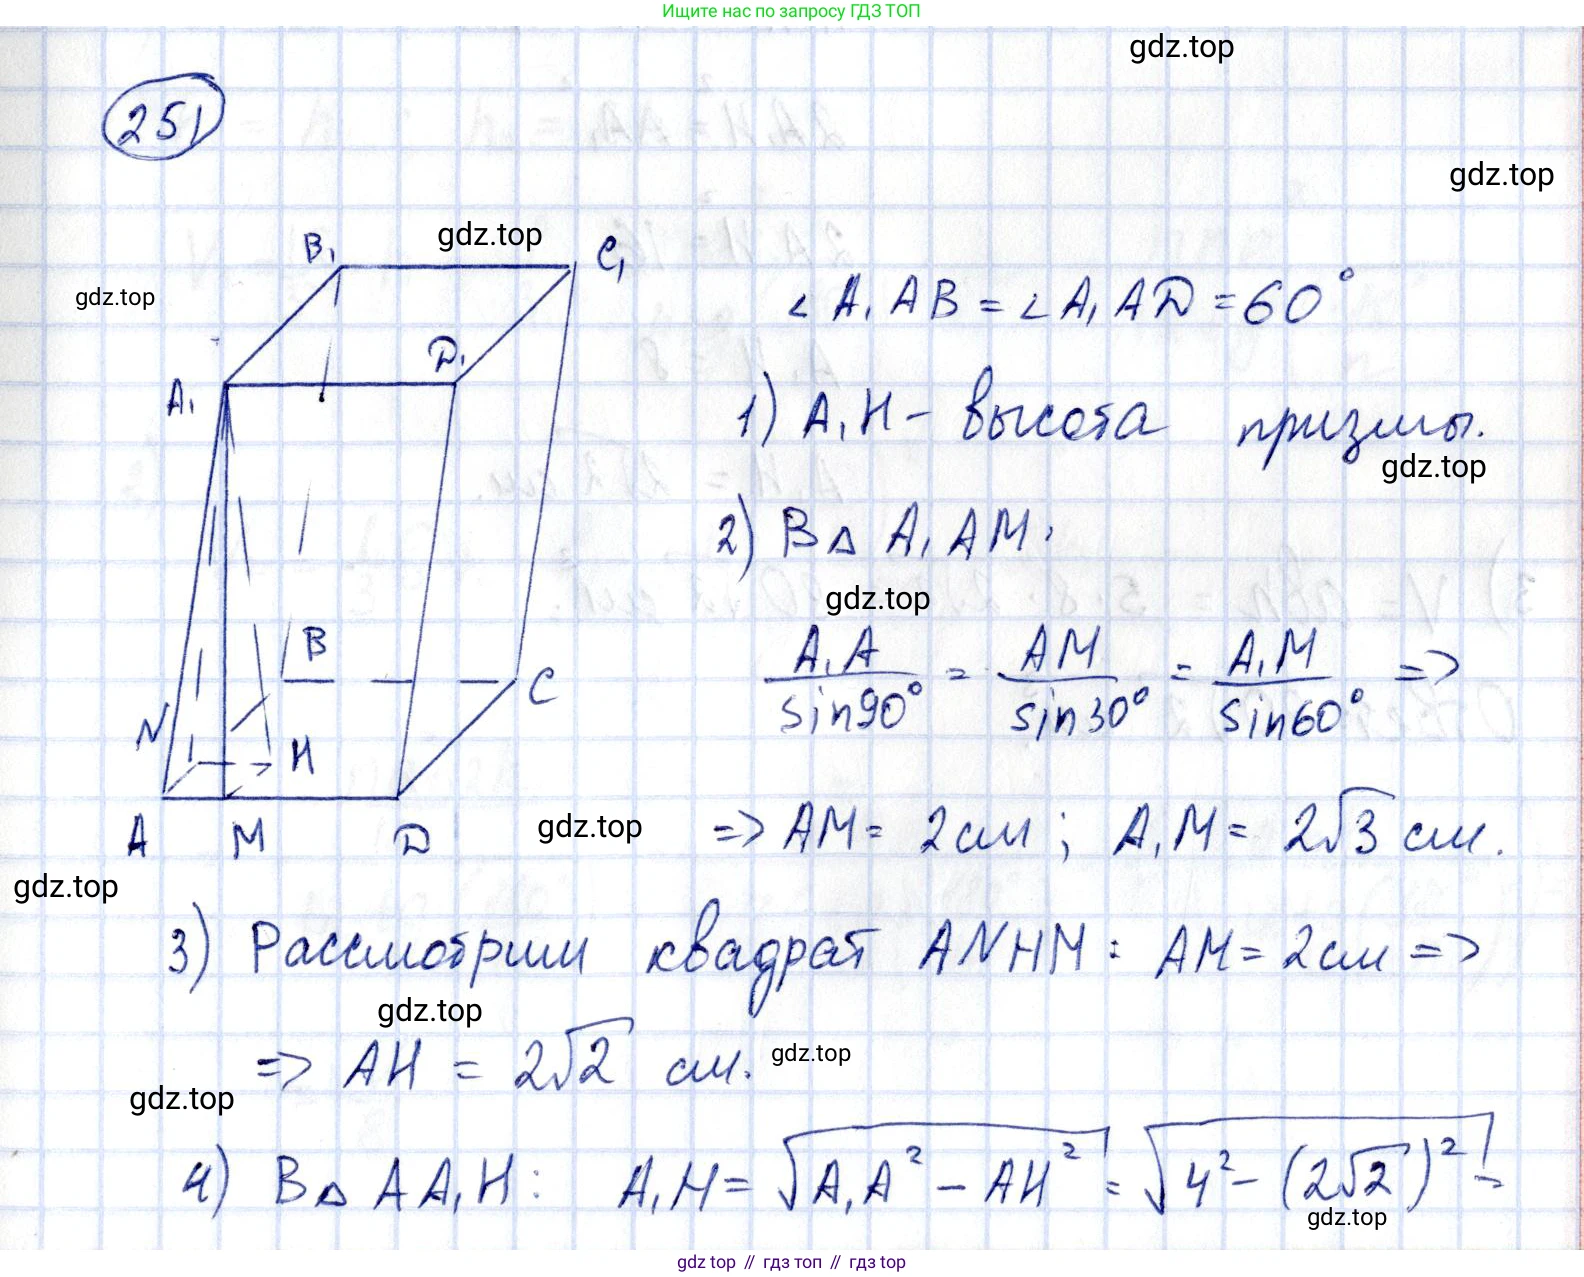 Ищите нас по запросу ГДЗ ТОП
gdz.top
251
gdz.top
gdz.top
B₁
C₁
gdz.top
∠A₁AB = ∠A₁AD = 60°
D₁
A₁
1) A₁H - высота призмы.
gdz.top
2) В △ A₁AM:
gdz.top
A₁A/sin90° = AM/sin30° = A₁M/sin60° =>
B
C
N
H
A M D
gdz.top
=> AM = 2 см ; A₁M = 2√3 см.
gdz.top
3) Рассмотрим квадрат ANHM : AM = 2 см =>
gdz.top
=> AH = 2√2 см.
gdz.top
gdz.top
4) В △ AA₁H: A₁H = √(A₁A² - AH²) = √(4² - (2√2)²) =
gdz.top
gdz top // гдз топ // гдз top